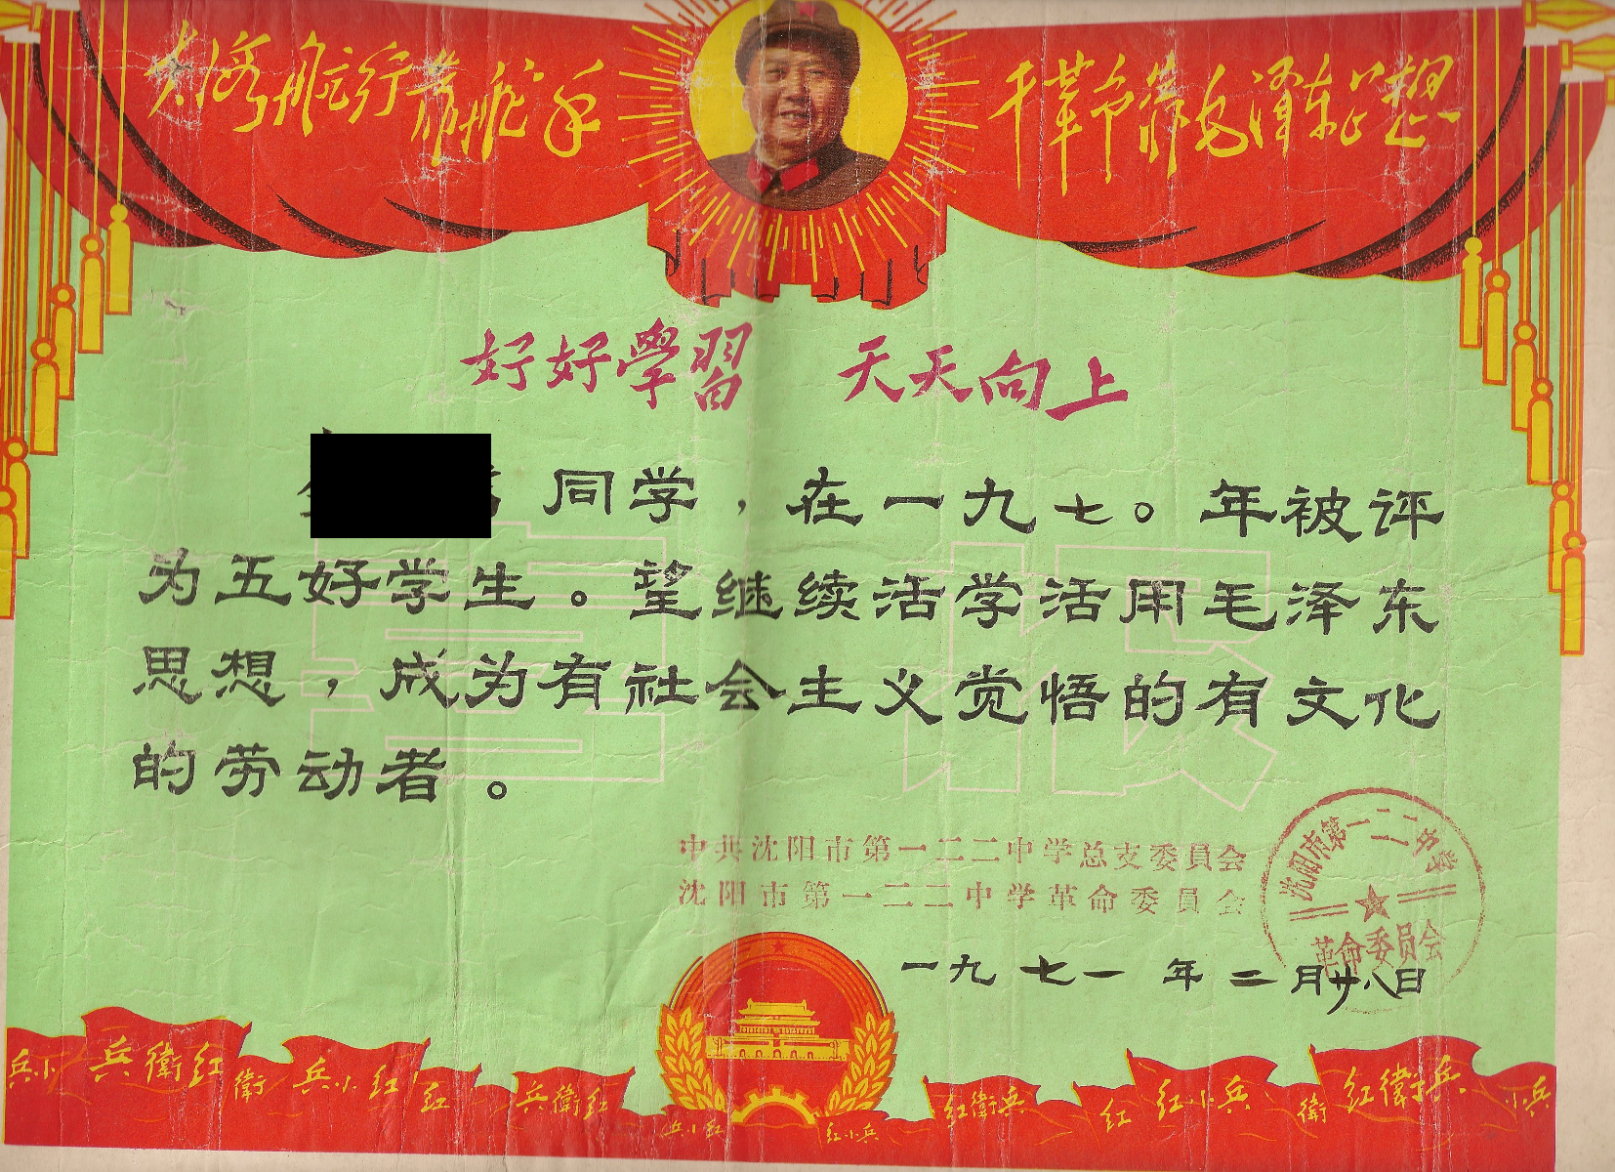 大海航行靠舵手
干革命靠毛泽东思想
好好學習 天天向上
同学，在一九七〇年被评
为五好学生。望继续活学活用毛泽东
思想，成为有社会主义觉悟的有文化
的劳动者。
喜报
中共沈阳市第一二二中学总支委員会
沈阳市第一二二中学革命委員会
沈阳市第一二二中学
革命委员会
一九七一年二月廿八日
兵小
兵衛红
衛
兵小红
红
兵衛红
兵小红
红小兵
红衛兵
红
红小兵
衛
红衛兵
小兵